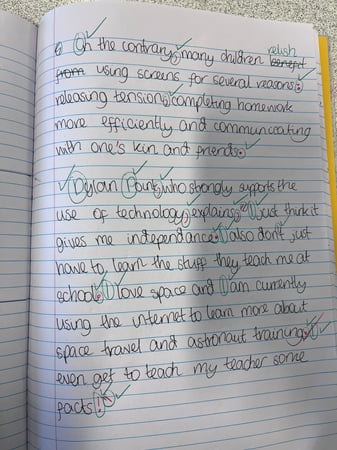 On the contrary, many children relish
benefit
from using screens for several reasons:
releasing tension, completing homework
more efficiently and communicating
with one's kin and friends.
Dylan Point, who strongly supports the
use of technology, explains, "I just think it
gives me independence. I also don't just
have to learn the stuff they teach me at
school. I love space and I am currently
using the internet to learn more about
space travel and astronaut training. I
even get to teach my teacher some
facts!"